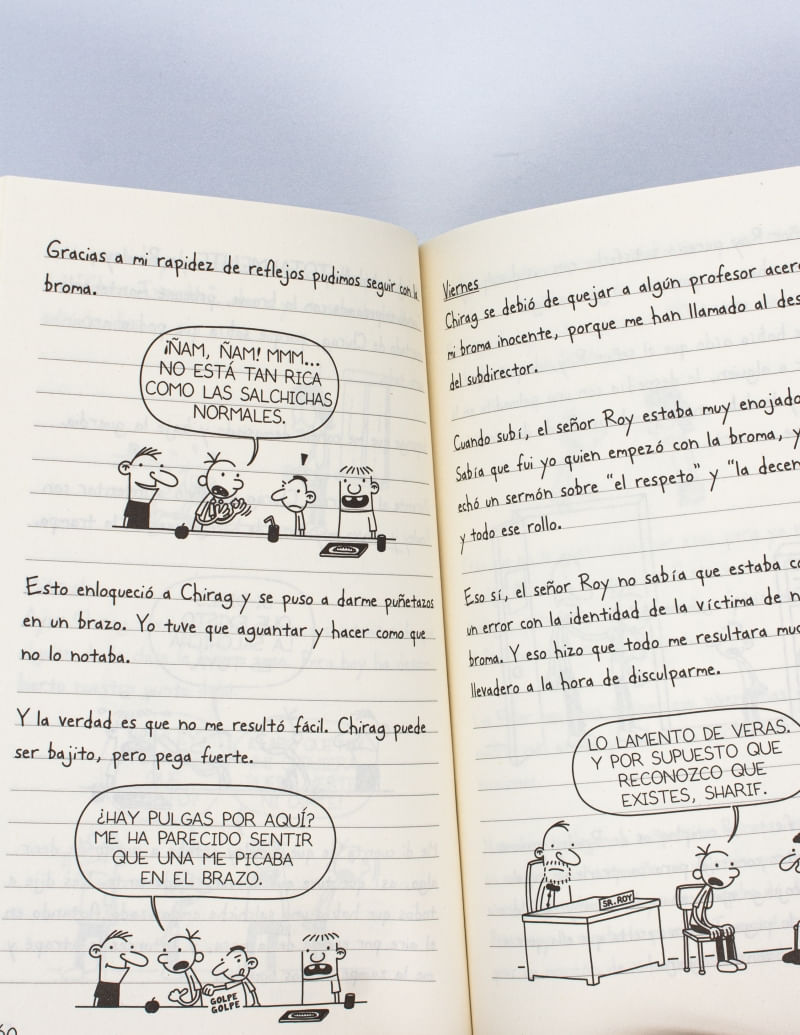 Gracias a mi rapidez de reflejos pudimos seguir con la
broma.
¡ÑAM, ÑAM! MMM...
NO ESTÁ TAN RICA
COMO LAS SALCHICHAS
NORMALES.
Esto enloqueció a Chirag y se puso a darme puñetazos
en un brazo. Yo tuve que aguantar y hacer como que
no lo notaba.
Y la verdad es que no me resultó fácil. Chirag puede
ser bajito, pero pega fuerte.
¿HAY PULGAS POR AQUÍ?
ME HA PARECIDO SENTIR
QUE UNA ME PICABA
EN EL BRAZO.
GOLPE
GOLPE
60
Viernes
Chirag se debió de quejar a algún profesor acer
mi broma inocente, porque me han llamado al des
del subdirector.
Cuando subí, el señor Roy estaba muy enojado
Sabía que fui yo quien empezó con la broma, y
echó un sermón sobre "el respeto" y "la decen
y todo ese rollo.
Eso sí, el señor Roy no sabía que estaba co
un error con la identidad de la víctima de n
broma. Y eso hizo que todo me resultara muc
llevadero a la hora de disculparme.
LO LAMENTO DE VERAS.
Y POR SUPUESTO QUE
RECONOZCO QUE
EXISTES, SHARIF.
SR. ROY